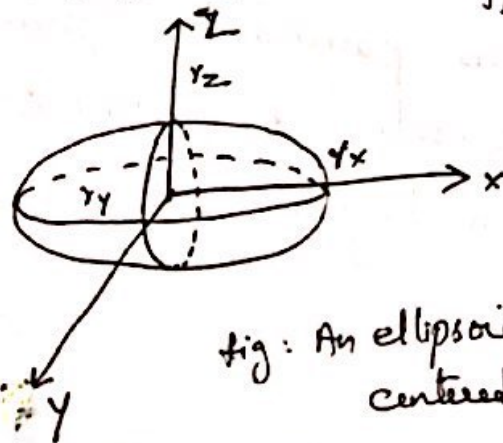 z
r_z
r_x
x
r_y
fig: An ellipsoi
centered
y